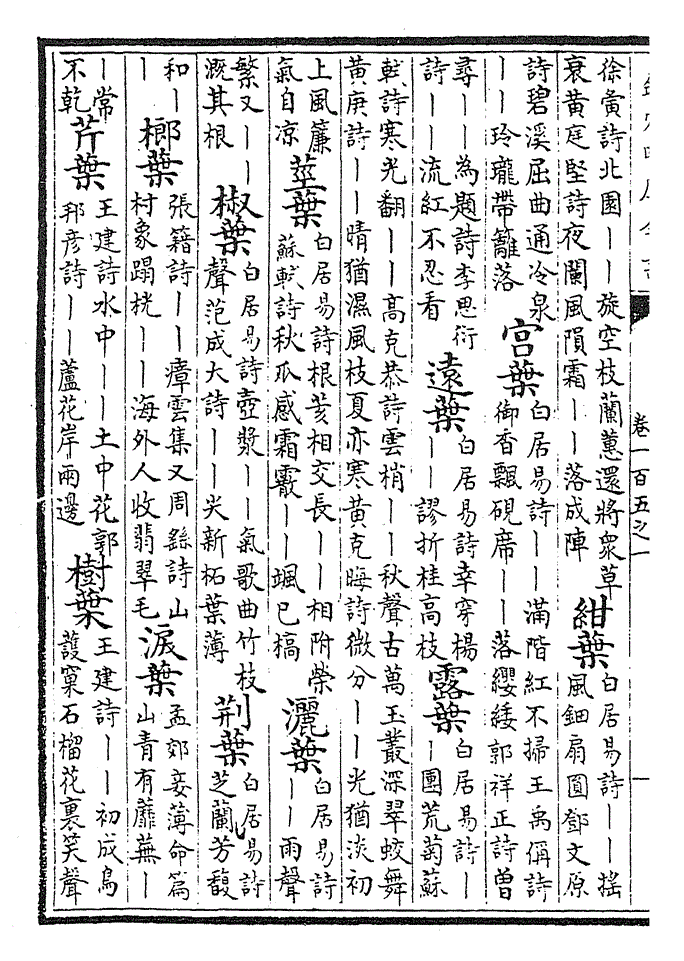 徐夤詩北園丨丨旋空枝蘭蕙還將衆草
衰黄庭堅詩夜闌風隕霜丨丨落成陣
紺葉
白居易詩丨丨揺
風鈿扇圓鄧文原
詩碧溪屈曲通冷泉
丨丨玲瓏帶籬落
宫葉
白居易詩丨丨滿階紅不掃王禹偁詩
御香飄硯席丨丨落纓緌郭祥正詩曽
尋丨丨為題詩李思衍
詩丨丨流紅不忍看
遠葉
白居易詩幸穿楊
丨丨謬折桂高枝
露葉
白居易詩丨
丨團荒菊蘇
軾詩寒光翻丨丨高克恭詩雲梢丨丨秋聲古萬玉叢深翠蛟舞
黄庚詩丨丨晴猶濕風枝夏亦寒黄克晦詩微分丨丨光猶淡初
上風簾
氣自凉
莖葉
白居易詩根荄相交長丨丨相附榮
蘇軾詩秋瓜感霜霰丨丨颯已槁
灑葉
白居易詩
丨丨雨聲
繁又丨丨
溉其根
椒葉
白居易詩壺漿丨丨氣歌曲竹枝
聲范成大詩丨丨尖新柘葉薄
荆葉
白居易詩
芝蘭芳馥
和丨
丨
榔葉
張籍詩丨丨瘴雲集又周繇詩山
村象蹋桄丨丨海外人收翡翠毛
淚葉
孟郊妾薄命篇
山青有蘼蕪丨
丨常
不乾
芹葉
王建詩水中丨丨土中花郭
邦彦詩丨丨蘆花岸兩邊
樹葉
王建詩丨丨初成鳥
護窠石榴花裏笑聲
卷一百五之一